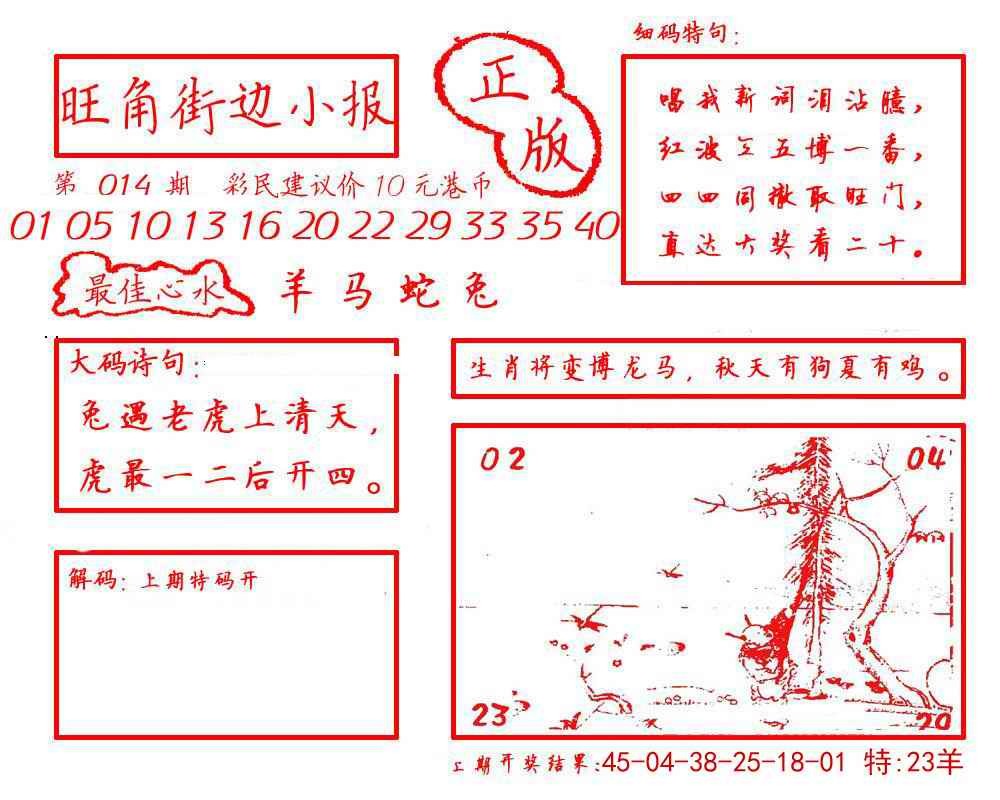 旺角街边小报
正版
第 014 期 彩民建议价 10 元港币
01 05 10 13 16 20 22 29 33 35 40
最佳心水 羊马蛇兔
细码特句:
唱我新词泪沾臆,
红波 五博一番,
四四同撤取旺门,
直达大奖看二十。
大码诗句:
兔遇老虎上清天,
虎最一二后开四。
解码: 上期特码开
生肖将变博龙马, 秋天有狗夏有鸡。
02 04
23 20
上期开奖结果:45-04-38-25-18-01 特:23羊